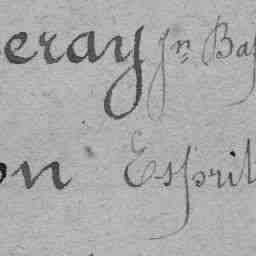 eray jn Bap
on Esprit